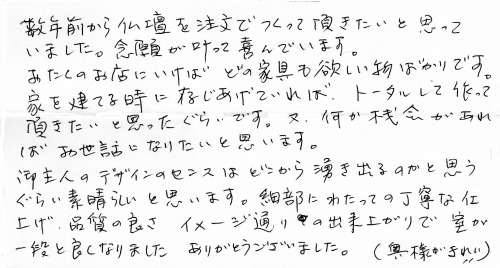 数年前から仏壇を注文でつくって頂きたいと思って
いました。念願が叶って喜んでいます。
あたくのお店にいけば どの家具も欲しい物ばかりです。
家を建てる時に存じあげていれば、トータルして作って
頂きたいと思ったぐらいです。又、何か残念があれ
ば お世話になりたいと思います。
御主人のデザインのセンスはどこから湧き出るのかと思う
ぐらい素晴らしいと思います。細部にわたっての丁寧な仕
上げ、品質の良さ イメージ通りの出来上がりで 室が
一段と良くなりました ありがとうございました。(奥様がきれい)